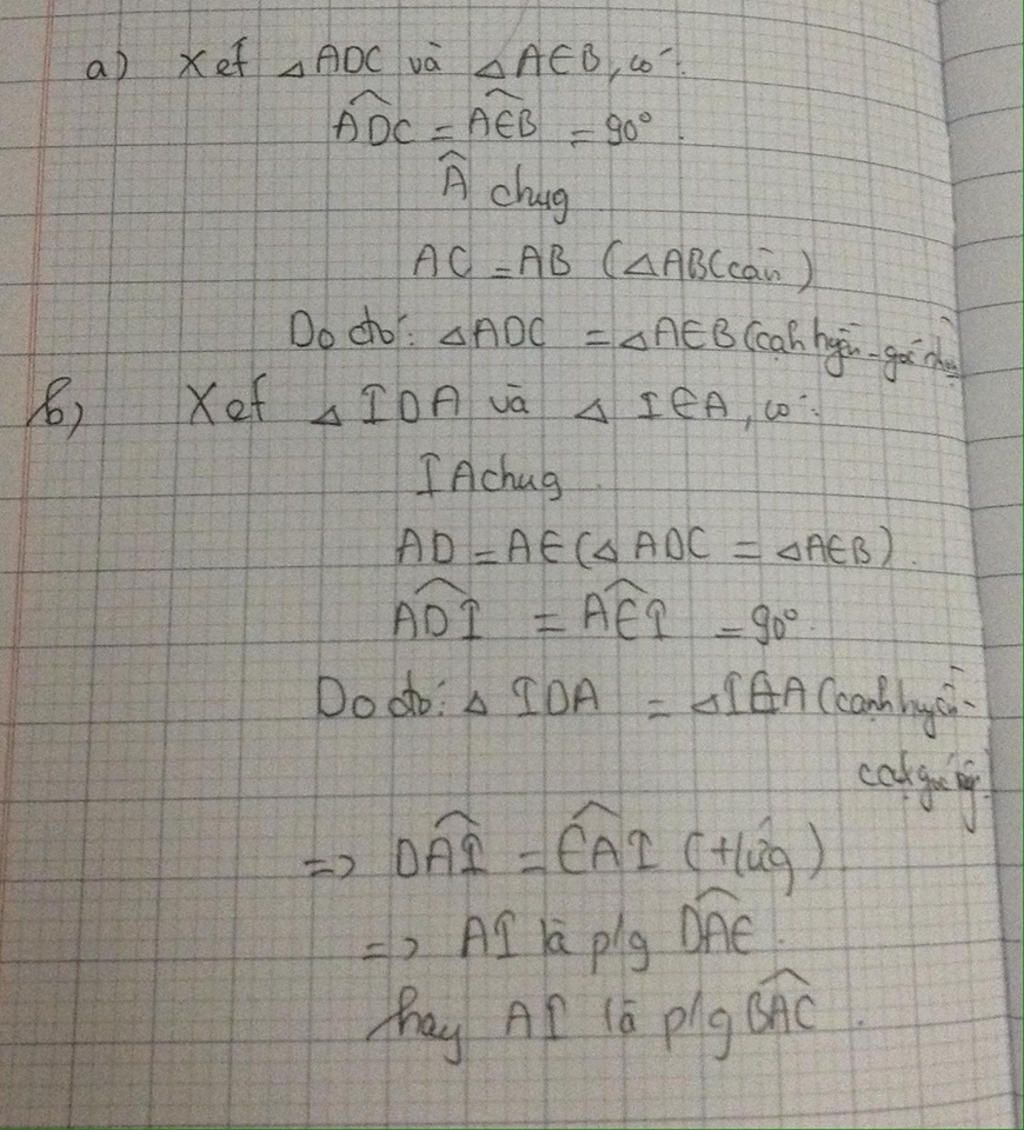 a) Xét △ADC và △AEB, có:
ADC = AEB = 90°.
Â chug
AC = AB (△ABC cân)
Do đó: △ADC = △AEB (cạh hyền - góc nhọn
b) Xét △IDA và △IEA, có:
IA chug
AD = AE (△ADC = △AEB).
ADI = AEI = 90°.
Do đó: △IDA = △IEA (cạnh huyền -
=> DAI = EAI (t/ứg)
=> AI là p/g DAE.
hay AI là p/g BAC.